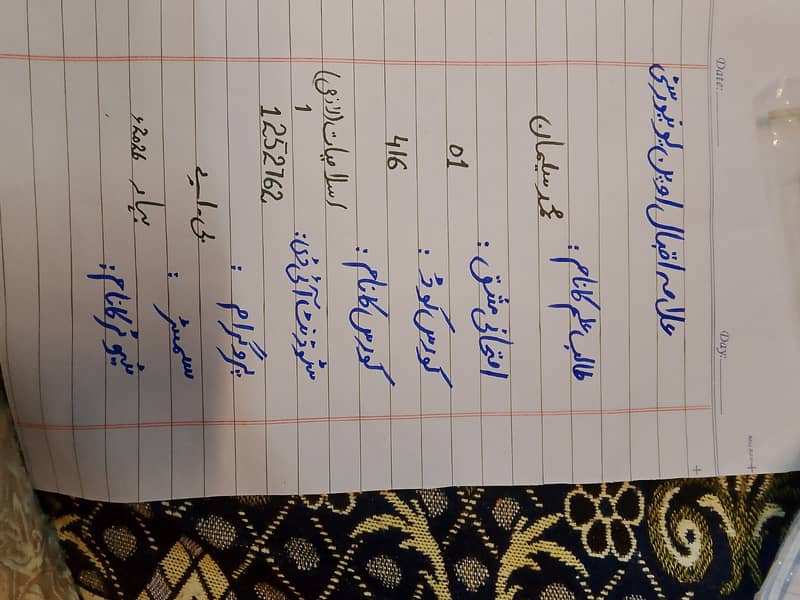 Date: Day:
علامہ اقبال اوپن یونیورسٹی
طالب علم کا نام : محمد سلیمان
امتحانی مشق : 01
کورس کوڈ : 416
کورس کا نام : اسلامیات (لازمی)
سٹوڈنٹ آئی ڈی : 1252762
پروگرام : بی۔اے
سمسٹر : بہار 2026ء
ٹیوٹر کا نام :